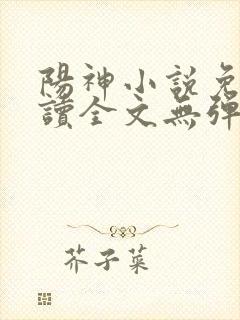 陽神小說免
讀全文無彈
芥子菜